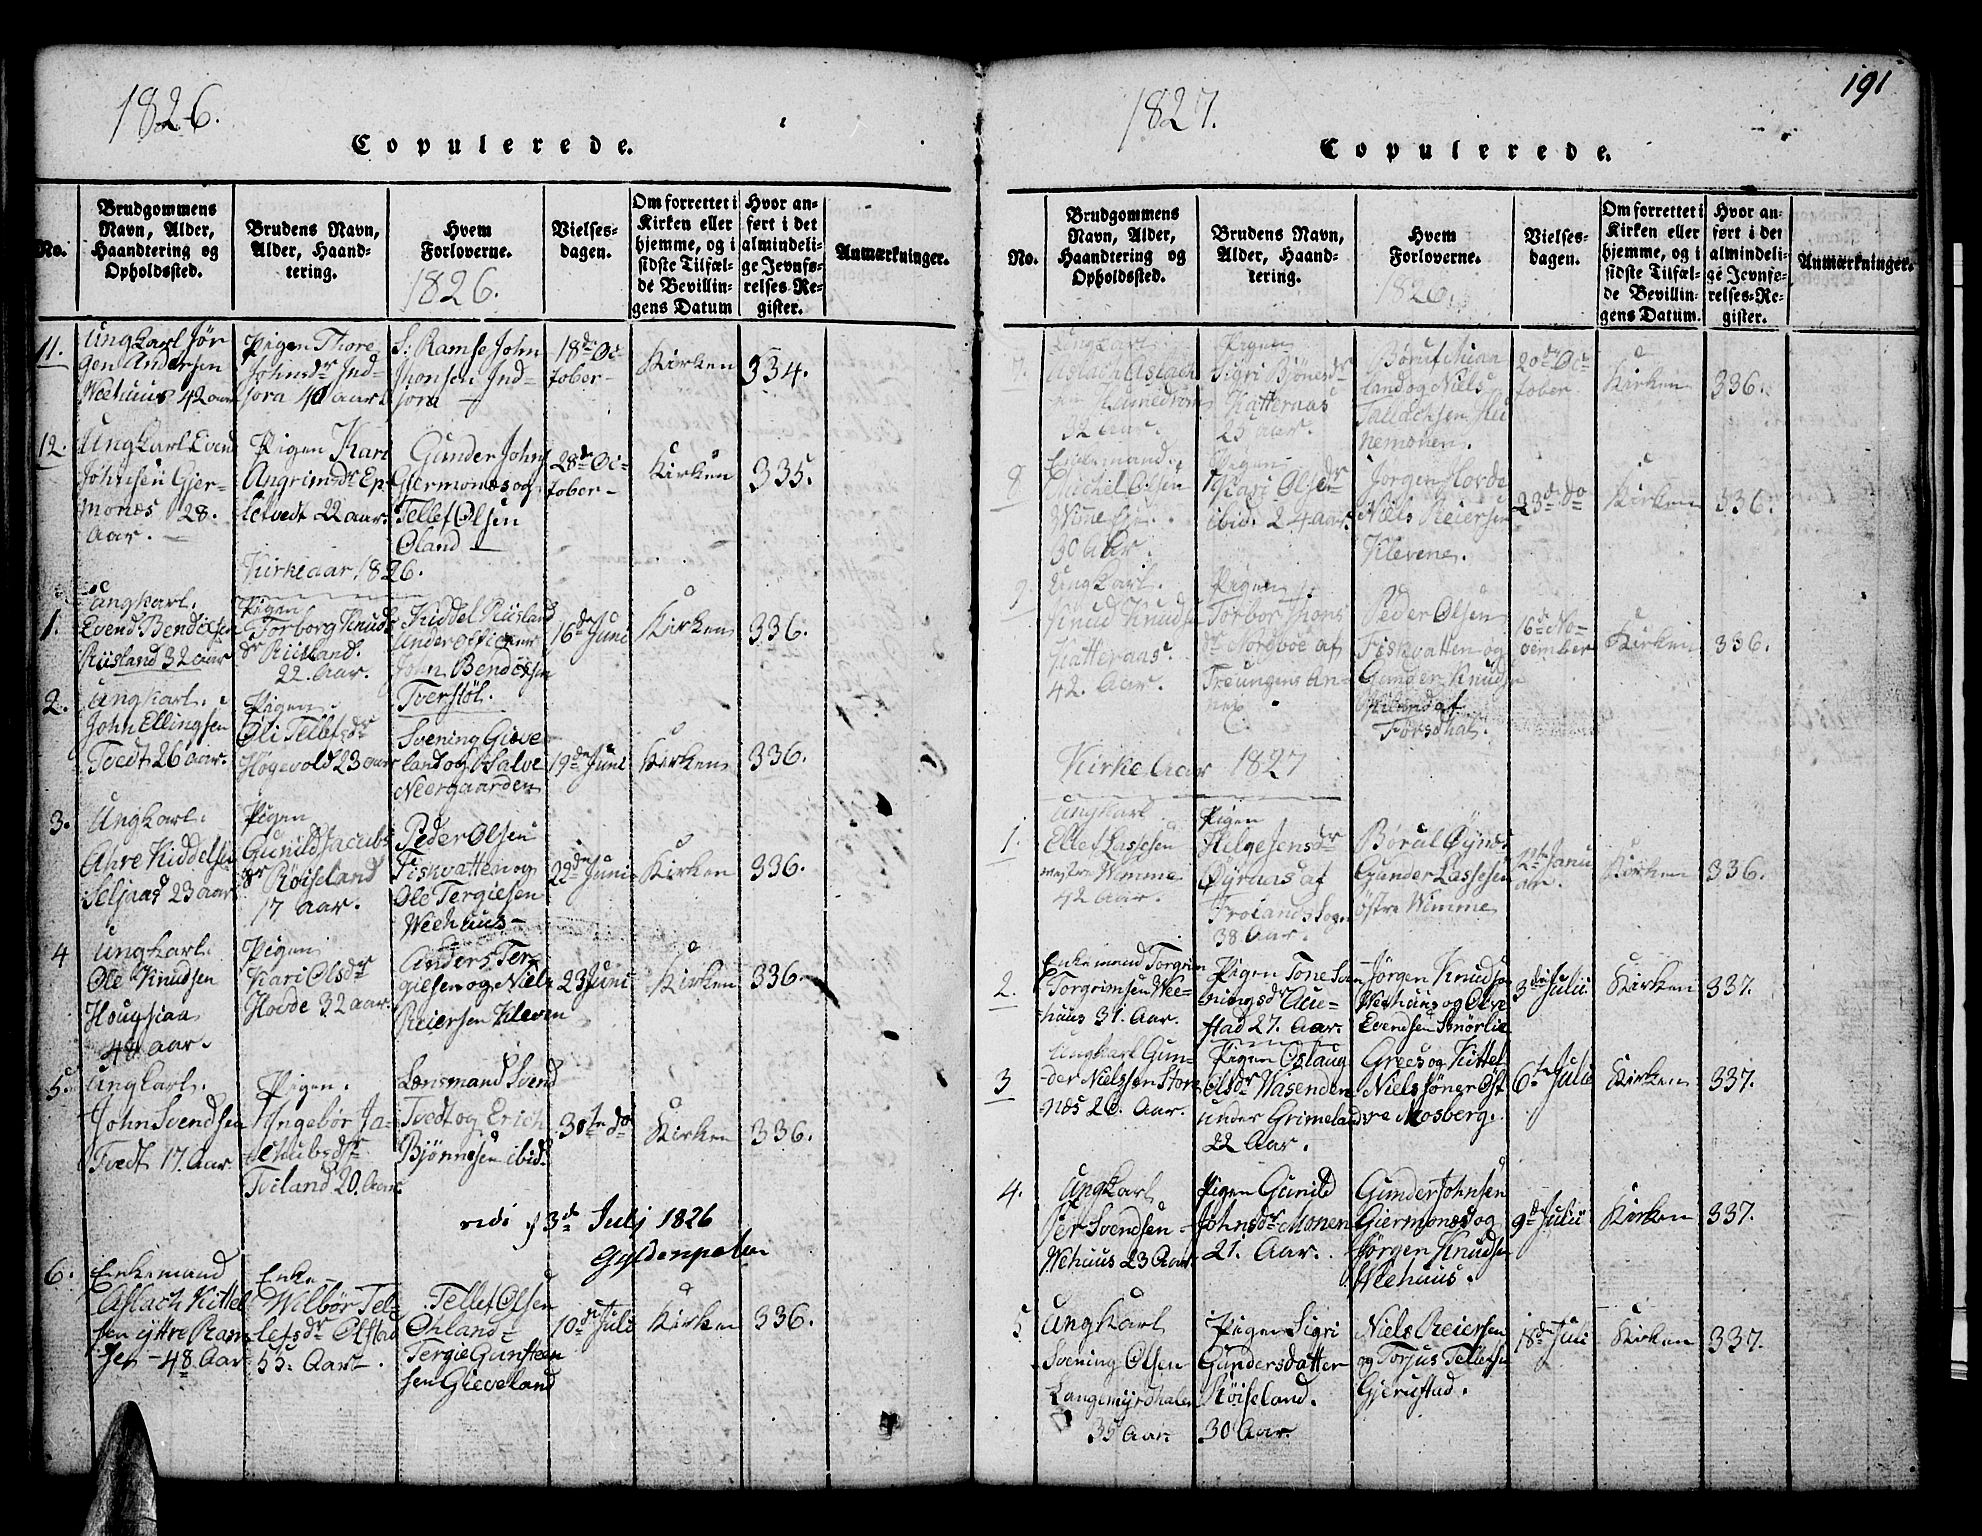 1826.
Copulerede.
No.
Brudgommens
Navn, Alder,
Haandtering og
Opholdssted.
Brudens Navn,
Alder, Haand-
tering.
Hvem
Forloverne.
1826.
Vielses-
dagen.
Om forrettet i
Kirken eller
hjemme, og i
sidste Tilfæl-
de Bevillin-
gens Datum
Hvor an-
ført i det
almindeli-
ge Jevnfø-
relses-Re-
gister.
Anmærkninger.
11.
Ungkarl Jør
gen Andersen
Weehuus 42 aar
Pigen Thore
Johnsdr Ind-
jora 40 aar
S: Ramse John
Jhonsen Ind-
jora
18de Oc
tober
Kirken
334.
12.
Ungkarl Evend
Johnsen Gjer-
monæs 28.
Aar.
Pigen Kari
Angrimsdr Ep-
letvedt 22 aar.
Gunder Johns
Gjermonæs og
Tellef Olsen
Øland
28de Oc-
tober
Kirken
335.
Kirkeaar 1826.
1.
Ungkarl.
Evend Bendixsen
Riisland 32 aar
Pigen
Torborg Knuds
dr Riisland.
22. Aar.
Kiddel Riisland
Underofficeer
John Bendixsen
Tverstøl.
16de Juni
Kirken
336.
2.
Ungkarl.
John Ellingsen
Tvedt 26 aar.
Pigen
Oli Tellefsdr
Høgevold 23 aar
Svening Gieve
land og Salve
Neergaarden
19de Juni
Kirken
336.
3.
Ungkarl.
Anre Kiddelsen
Seljaas 23 aar
Pigen
Gunild Jacobs
dr Røiseland
17 aar.
Peder Olsen
Fiskvatten og
Ole Tergiesen
Weehuus
22de Juni
Kirken
336.
4
Ungkarl
Ole Knudsen
Hougsiaa
48 aar.
Pigen
Kari Olsdr
Hovde 32 aar.
Anders Ter-
giesen og Niels
Reiersen Kleven
23 Juni
Kirken
336.
5.
Ungkarl.
John Svendsen
Tvedt 17. Aar
Pigen.
Ingebør Ja-
chubsdr
Tviland 20. Aar.
Lensmand Svend
Tvedt og Erich
Bjønnesen ibid.
30te do
Kirken
336.
vidi d 3d Julj 1826
Gyldenpalm
6.
Enkemand
Aslach Kittel
sen yttre Ram
se 48 Aar
Enke
Wilbør Tel-
lefsdr Ølstad
53. Aar.
Tellef Olsen
Øhland
Tergie Gunsteen
sen Gieveland
10de Juli
Kirken
336.
191
1827.
Copulerede.
No.
Brudgommens
Navn, Alder,
Haandtering og
Opholdssted.
Brudens Navn,
Alder, Haand-
tering.
Hvem
Forloverne.
1826.
Vielses-
dagen.
Om forrettet i
Kirken eller
hjemme, og i
sidste Tilfæl-
de Bevillin-
gens Datum.
Hvor an-
ført i det
almindeli-
ge Jevnfø-
relses-Re-
gister.
Anmærkninger.
7
Ungkarl.
Aslach Aslach
32 Aar.
Pigen
Sigri Bjønesdr
Katteraas
25 aar.
land og Niels
Tallachsen
nemonen.
20de Oc
tober
Kirken
336.
8
Enkemand.
Michel Olsen
Wimme
30 Aar.
Pigen
Kari Olsensdr
ibid. 24 Aar.
Jørgen Hovde
Niels Reiersen
Klevene.
23de do
Kirken
336.
9
Ungkarl.
Knud Knudsen
Katteraas.
42. Aar.
Pigen
Torbor Jhons
dr Nordvoe af
Treungens An-
nex
Peder Olsen
Fiskvatten og
Gunder Knudsen
af
Forsdhal.
16de No-
vember
Kirken
336.
Kirke Aar 1827
1.
Ungkarl
Ellef Lassesen
vestre Wimme
42 Aar.
Pigen
Helge Jensdr
Øyraas af
Frolands Sogn
38 Aar.
Børul Øynes
Gunder Lassesen
østre Wimme
2de Janu
ar.
Kirken
336.
2.
Enkemand Torgrim
Torgrimsen Wee-
huus 31. Aar.
Pigen Tone Sven
bungsdr Aue-
stad 27. Aar.
Jørgen Knudsen
Weehuus og Ole
Evendsen Snørlie
3die Julii
Kirken
337.
3
Ungkarl Gun-
der Nielssen Stor
næs 26. Aar.
Pigen Oslaug
Olsdr Wasenden
under Grimeland
22 Aar.
Grees og Kittel
Nielssøner Øst
re Mosberg.
6te Julii
Kirken
337.
4.
Ungkarl
Per Svendsen
Wehuus 23 Aar.
Pigen Gunild
Johnsdr Monen
21. Aar.
Gunder Johnsen
Giermonæs og
Jørgen Knudsen
Weehuus.
9de Julii
Kirken
337.
5
Ungkarl
Svening Olsen
Langemyrdhalen
35 Aar.
Pigen Sigri
Gundersdatter
Røiseland.
30 Aar.
Niels Reiersen
og Torjus Tellefsen
Gjerustad.
18de Juli
Kirken
337.